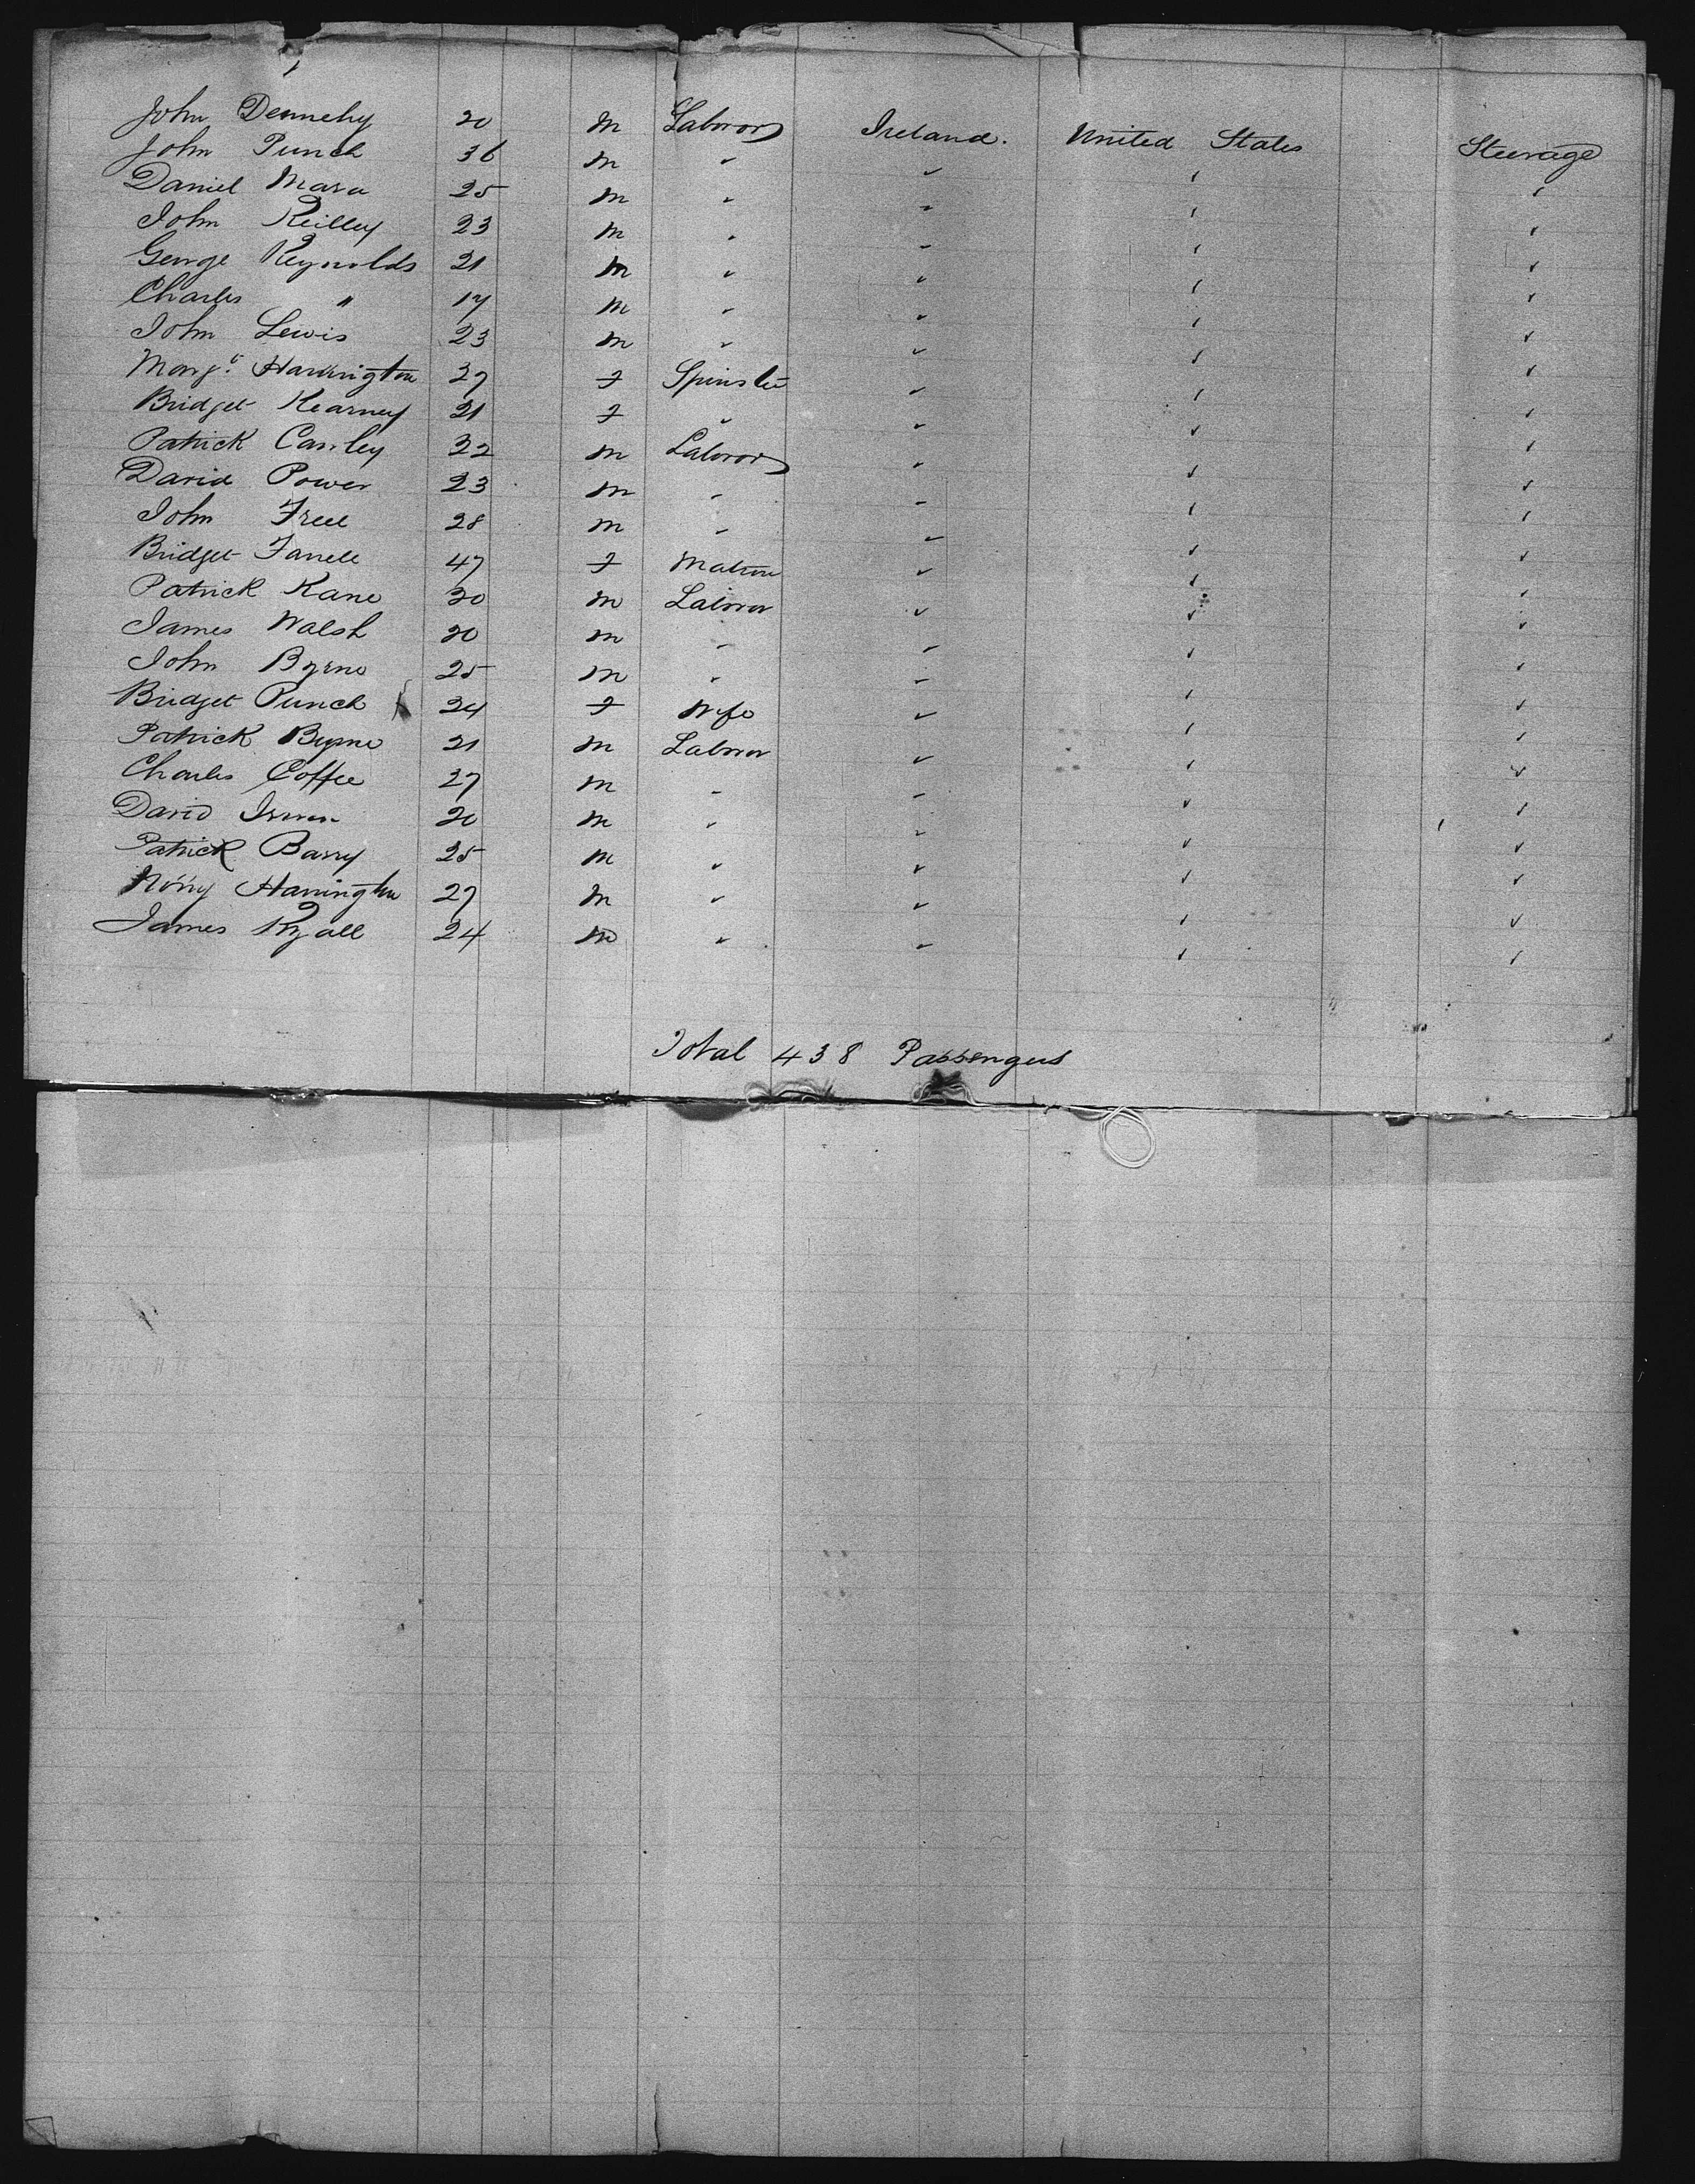 John Dennehy 20 m Labror Ireland. United States Steerage
John Punch 36 m " " " "
Daniel Mara 25 m " " " "
John Reilley 23 m " " " "
George Reynolds 21 m " " " "
Charles " 17 m " " " "
John Lewis 23 m " " " "
Margt. Harrington 27 f Spinster " " "
Bridget Kearney 21 f " " " "
Patrick 22 m Labror " " "
David Power 23 m " " " "
John Freel 28 m " " " "
Bridget Farrell 47 f Matron " " "
Patrick Kane 30 m Labror " " "
James Walsh 20 m " " " "
John Byrne 25 m " " " "
Bridget Punch 24 f Wife " " "
Patrick Byrne 21 m Labror " " "
Charles Coffee 27 m " " " "
David 20 m " " " "
Patrick Barry 25 m " " " "
Harrington 27 m " " " "
James Ryall 24 m " " " "
Total 438 Passengers